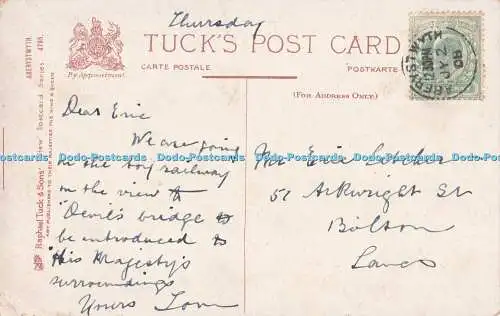 Thursday
TUCK'S POST CARD
CARTE POSTALE
POSTKARTE
By Appointment
(FOR ADDRESS ONLY)
ABERYSTWYTH.
Raphael Tuck & Sons' "View" Postcard Series 4785.
ART PUBLISHERS TO THEIR MAJESTIES THE KING & QUEEN
ABERYSTWYTH
12
JA 2
08
Dear Eric
We are going
on the toy railway
on the view to
Devil's bridge to
be introduced to
His Majesty's
surroundings
Yours Tom
Mr Eric
51 Arkwright St
Bolton
Lancs
Dodo-Postcards Dodo-Postcards Dodo-Postcards Dodo-Postcards